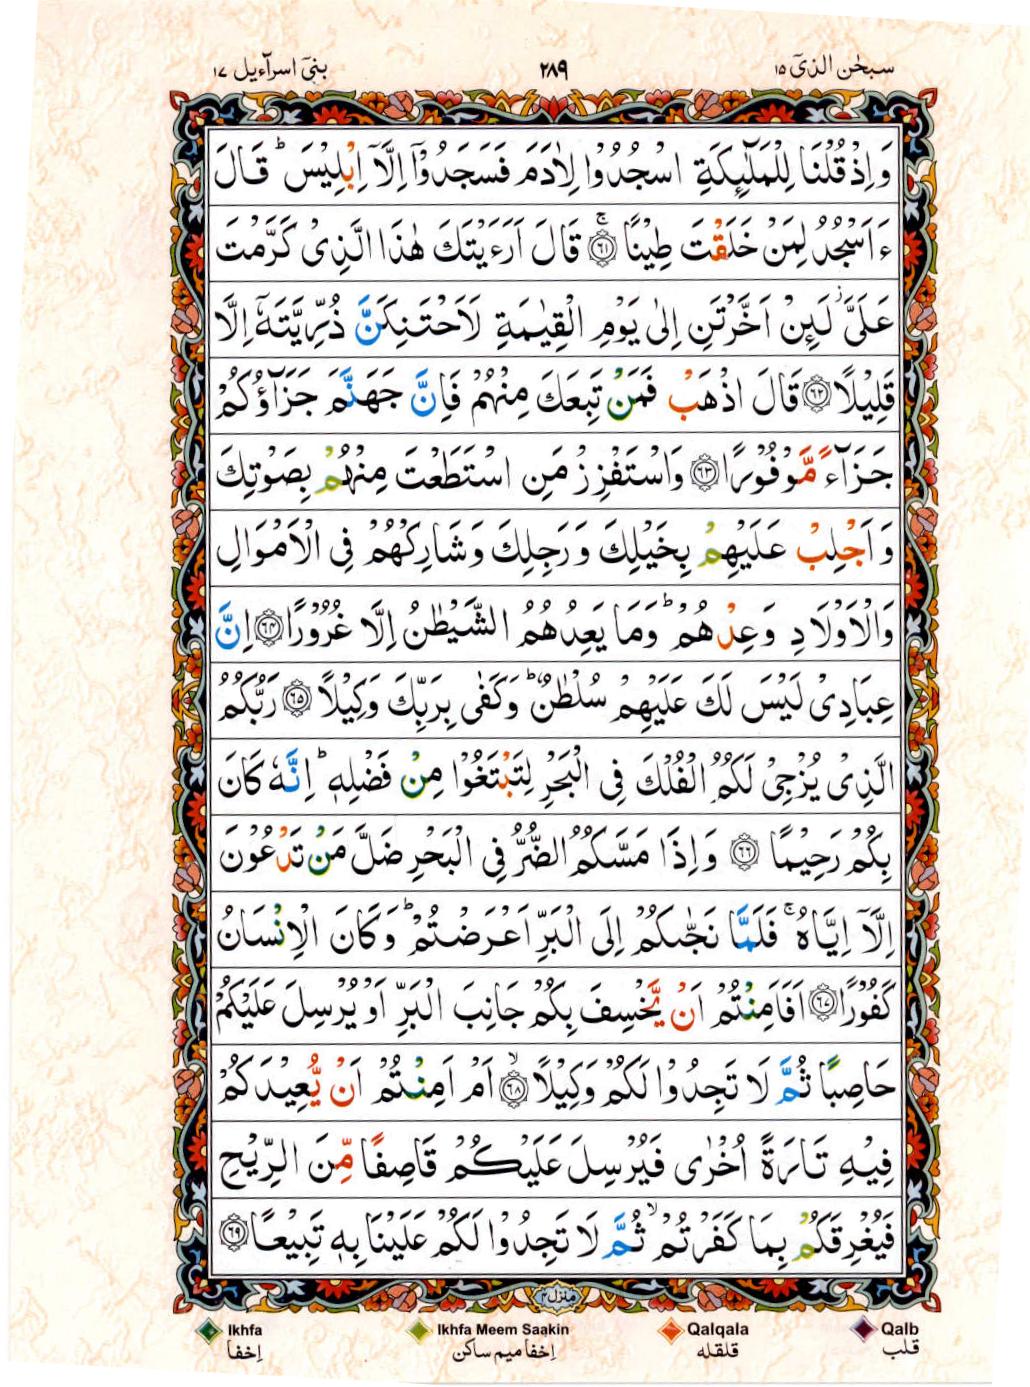 سبحٰن الذیٓ ١٥
٢٨٩
بنیٓ اسرآءیل ١٧
وَاِذْ قُلْنَا لِلْمَلٰٓئِكَةِ اسْجُدُوْا لِاٰدَمَ فَسَجَدُوْۤا اِلَّاۤ اِبْلِیْسَ ؕ قَالَ
ءَاَسْجُدُ لِمَنْ خَلَقْتَ طِیْنًا ۚ﴿٦١﴾ قَالَ اَرَءَیْتَكَ هٰذَا الَّذِیْ كَرَّمْتَ
عَلَیَّ ؗ لَئِنْ اَخَّرْتَنِ اِلٰی یَوْمِ الْقِیٰمَةِ لَاَحْتَنِكَنَّ ذُرِّیَّتَهٗۤ اِلَّا
قَلِیْلًا ﴿٦٢﴾ قَالَ اذْهَبْ فَمَنْ تَبِعَكَ مِنْهُمْ فَاِنَّ جَهَنَّمَ جَزَآؤُكُمْ
جَزَآءً مَّوْفُوْرًا ﴿٦٣﴾ وَاسْتَفْزِزْ مَنِ اسْتَطَعْتَ مِنْهُمْ بِصَوْتِكَ
وَاَجْلِبْ عَلَیْهِمْ بِخَیْلِكَ وَرَجِلِكَ وَشَارِكْهُمْ فِی الْاَمْوَالِ
وَالْاَوْلَادِ وَعِدْهُمْ ؕ وَمَا یَعِدُهُمُ الشَّیْطٰنُ اِلَّا غُرُوْرًا ﴿٦٤﴾ اِنَّ
عِبَادِیْ لَیْسَ لَكَ عَلَیْهِمْ سُلْطٰنٌ ؕ وَكَفٰی بِرَبِّكَ وَكِیْلًا ﴿٦٥﴾ رَبُّكُمُ
الَّذِیْ یُزْجِیْ لَكُمُ الْفُلْكَ فِی الْبَحْرِ لِتَبْتَغُوْا مِنْ فَضْلِهٖ ؕ اِنَّهٗ كَانَ
بِكُمْ رَحِیْمًا ﴿٦٦﴾ وَاِذَا مَسَّكُمُ الضُّرُّ فِی الْبَحْرِ ضَلَّ مَنْ تَدْعُوْنَ
اِلَّاۤ اِیَّاهُ ۚ فَلَمَّا نَجّٰىكُمْ اِلَی الْبَرِّ اَعْرَضْتُمْ ؕ وَكَانَ الْاِنْسَانُ
كَفُوْرًا ﴿٦٧﴾ اَفَاَمِنْتُمْ اَنْ یَّخْسِفَ بِكُمْ جَانِبَ الْبَرِّ اَوْ یُرْسِلَ عَلَیْكُمْ
حَاصِبًا ثُمَّ لَا تَجِدُوْا لَكُمْ وَكِیْلًا ۙ﴿٦٨﴾ اَمْ اَمِنْتُمْ اَنْ یُّعِیْدَكُمْ
فِیْهِ تَارَةً اُخْرٰی فَیُرْسِلَ عَلَیْكُمْ قَاصِفًا مِّنَ الرِّیْحِ
فَیُغْرِقَكُمْ بِمَا كَفَرْتُمْ ۙ ثُمَّ لَا تَجِدُوْا لَكُمْ عَلَیْنَا بِهٖ تَبِیْعًا ﴿٦٩﴾
منزل ٤
Ikhfa
اِخفا
Ikhfa Meem Saakin
اِخفا میم ساکن
Qalqala
قلقله
Qalb
قلب